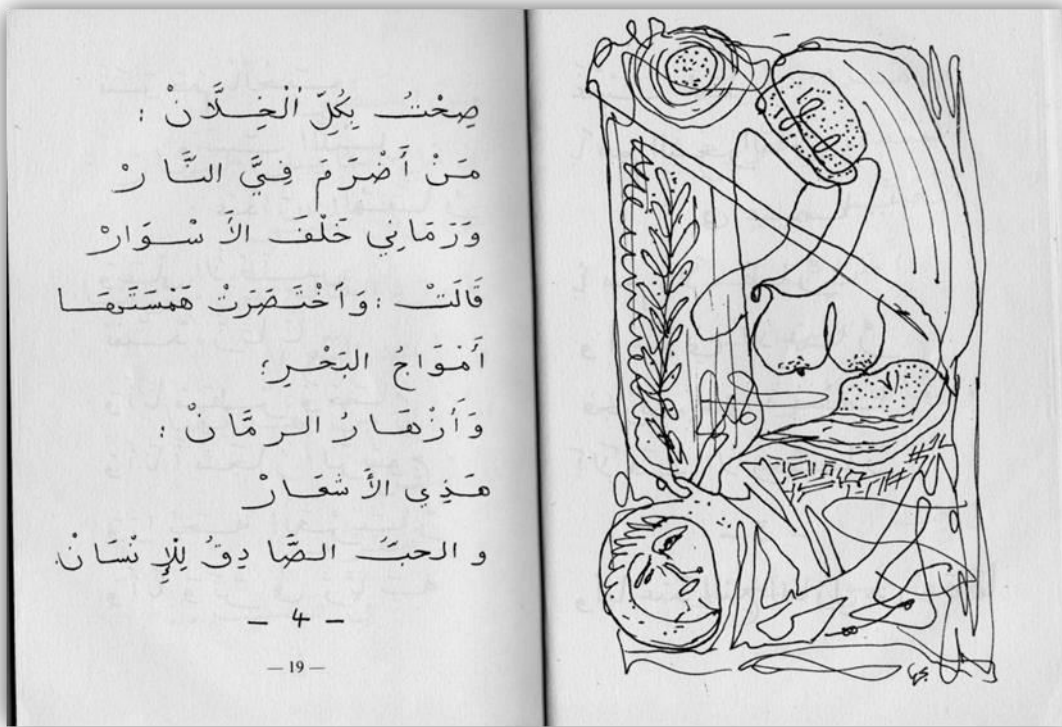 صِحْتُ بِكُلِّ الْخِلَّانْ :
مَنْ أَضْرَمَ فِيَّ النَّارْ
وَرَمَانِي خَلْفَ الأَسْوَارْ
قَالَتْ : وَاخْتَصَرَتْ هَمْسَتَهَا
أَمْوَاجُ البَحْرِ؛
وَأَزْهَارُ الرمَّانْ :
هَذِي الأَشْعَارْ
و الحبُّ الصَّادِقُ لِلْإِنْسَانْ.
– 4 –
— 19 —